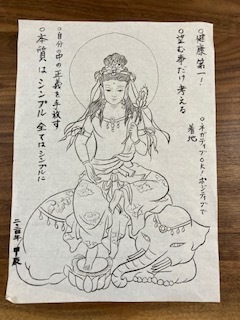 ○健康第一!
○望む事だけ考える
○ネガティブOK!ポジティブで
着地
○自分の中の正義を手放す
○本質はシンプル全てはシンプルに
二〇二四年 甲辰